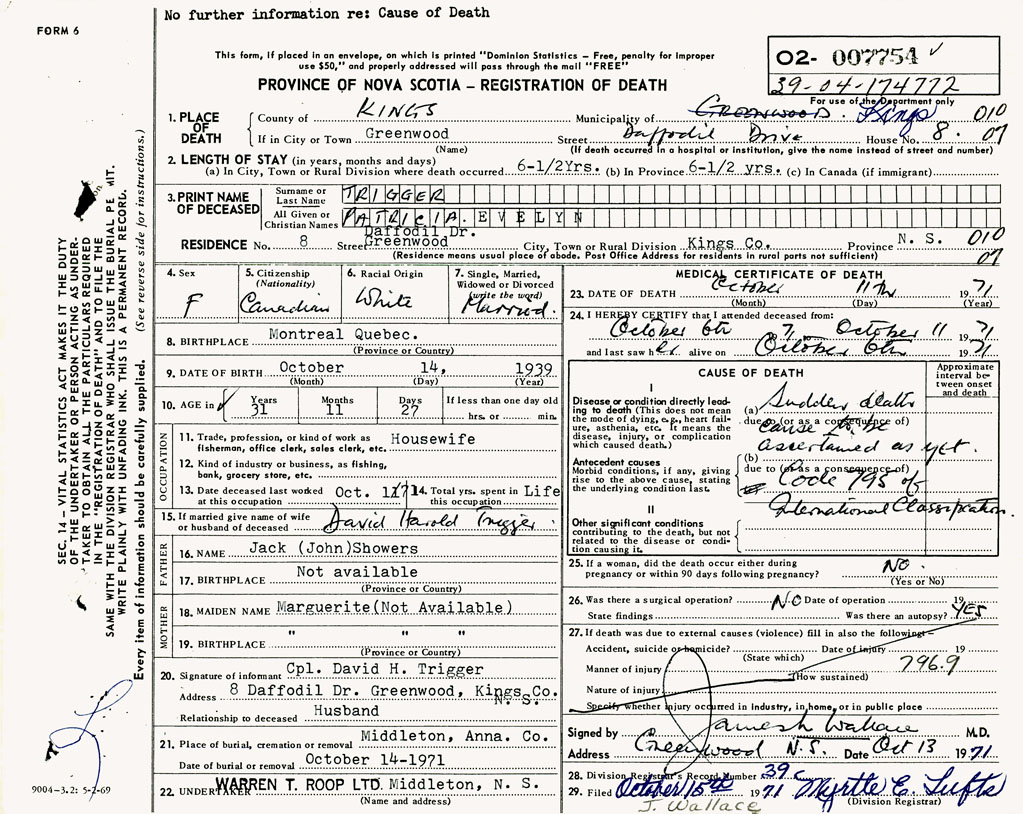 No further information re: Cause of Death
FORM 6
This form, if placed in an envelope, on which is printed "Dominion Statistics – Free, penalty for improper
use $50," and properly addressed will pass through the mail "FREE"
O2- 007754
39-04-174772
PROVINCE OF NOVA SCOTIA – REGISTRATION OF DEATH
For use of the Department only
1. PLACE OF DEATH
County of KINGS Municipality of Greenwood. Kings 010
If in City or Town Greenwood Street Daffodil Drive House No. 8. 07
(Name) (If death occurred in a hospital or institution, give the name instead of street and number)
2. LENGTH OF STAY (in years, months and days)
(a) In City, Town or Rural Division where death occurred 6-1/2Yrs. (b) In Province 6-1/2 yrs. (c) In Canada (if immigrant)
3. PRINT NAME OF DECEASED
Surname or Last Name TRIGGER
All Given or Christian Names PATRICIA. EVELYN
Daffodil Dr.
RESIDENCE No. 8 Street Greenwood City, Town or Rural Division Kings Co. Province N. S. 010
(Residence means usual place of abode. Post Office Address for residents in rural parts not sufficient) 07
4. Sex F
5. Citizenship (Nationality) Canadian
6. Racial Origin White
7. Single, Married, Widowed or Divorced (write the word) Married.
8. BIRTHPLACE Montreal Quebec.
(Province or Country)
9. DATE OF BIRTH October 14, 1939
(Month) (Day) (Year)
10. AGE in Years 31 Months 11 Days 27 If less than one day old
hrs. or min.
OCCUPATION
11. Trade, profession, or kind of work as Housewife
fisherman, office clerk, sales clerk, etc.
12. Kind of industry or business, as fishing,
bank, grocery store, etc.
13. Date deceased last worked at this occupation Oct. 11/71 14. Total yrs. spent in this occupation Life
15. If married give name of wife or husband of deceased David Harold Trigger.
FATHER
16. NAME Jack (John)Showers
17. BIRTHPLACE Not available
(Province or Country)
MOTHER
18. MAIDEN NAME Marguerite(Not Available)
19. BIRTHPLACE " " "
(Province or Country)
20. Signature of informant Cpl. David H. Trigger
Address 8 Daffodil Dr. Greenwood, Kings Co.
N. S.
Relationship to deceased Husband
21. Place of burial, cremation or removal Middleton, Anna. Co.
Date of burial or removal October 14-1971
22. UNDERTAKER WARREN T. ROOP LTD. Middleton, N. S.
(Name and address)
MEDICAL CERTIFICATE OF DEATH
23. DATE OF DEATH October 11th 1971
(Month) (Day) (Year)
24. I HEREBY CERTIFY that I attended deceased from:
October 6th 71 October 11 1971
and last saw her alive on October 6th 1971
CAUSE OF DEATH
Approximate interval between onset and death
I
Disease or condition directly leading to death (This does not mean the mode of dying, e.g., heart failure, asthenia, etc. It means the disease, injury, or complication which caused death.)
(a) Sudden death
due to (or as a consequence of)
cause to be
ascertained as yet.
Antecedent causes
Morbid conditions, if any, giving rise to the above cause, stating the underlying condition last.
(b)
due to (or as a consequence of)
Code 795 of
International Classification.
II
Other significant conditions
contributing to the death, but not related to the disease or condition causing it.
25. If a woman, did the death occur either during
pregnancy or within 90 days following pregnancy? NO.
(Yes or No)
26. Was there a surgical operation? NO Date of operation 19
State findings Was there an autopsy? YES
27. If death was due to external causes (violence) fill in also the following–
Accident, suicide or homicide? Date of injury 19
(State which)
Manner of injury 796.9
(How sustained)
Nature of injury
Specify whether injury occurred in industry, in home, or in public place
Signed by James H Wallace M.D.
Address Greenwood N.S. Date Oct 13 1971
28. Division Registrar's Record Number 39 c
29. Filed October 15th 1971 Myrtle E. Tufts
J. Wallace (Division Registrar)
SEC. 14–VITAL STATISTICS ACT MAKES IT THE DUTY
OF THE UNDERTAKER OR PERSON ACTING AS UNDER-
TAKER TO OBTAIN ALL THE PARTICULARS REQUIRED
IN THE "REGISTRATION OF DEATH" AND TO FILE THE
SAME WITH THE DIVISION REGISTRAR WHO SHALL ISSUE THE BURIAL PE MIT.
WRITE PLAINLY WITH UNFADING INK. THIS IS A PERMANENT RECORD.
Every item of information should be carefully supplied. (See reverse side for instructions.)
9004-3.2: 5-2-69